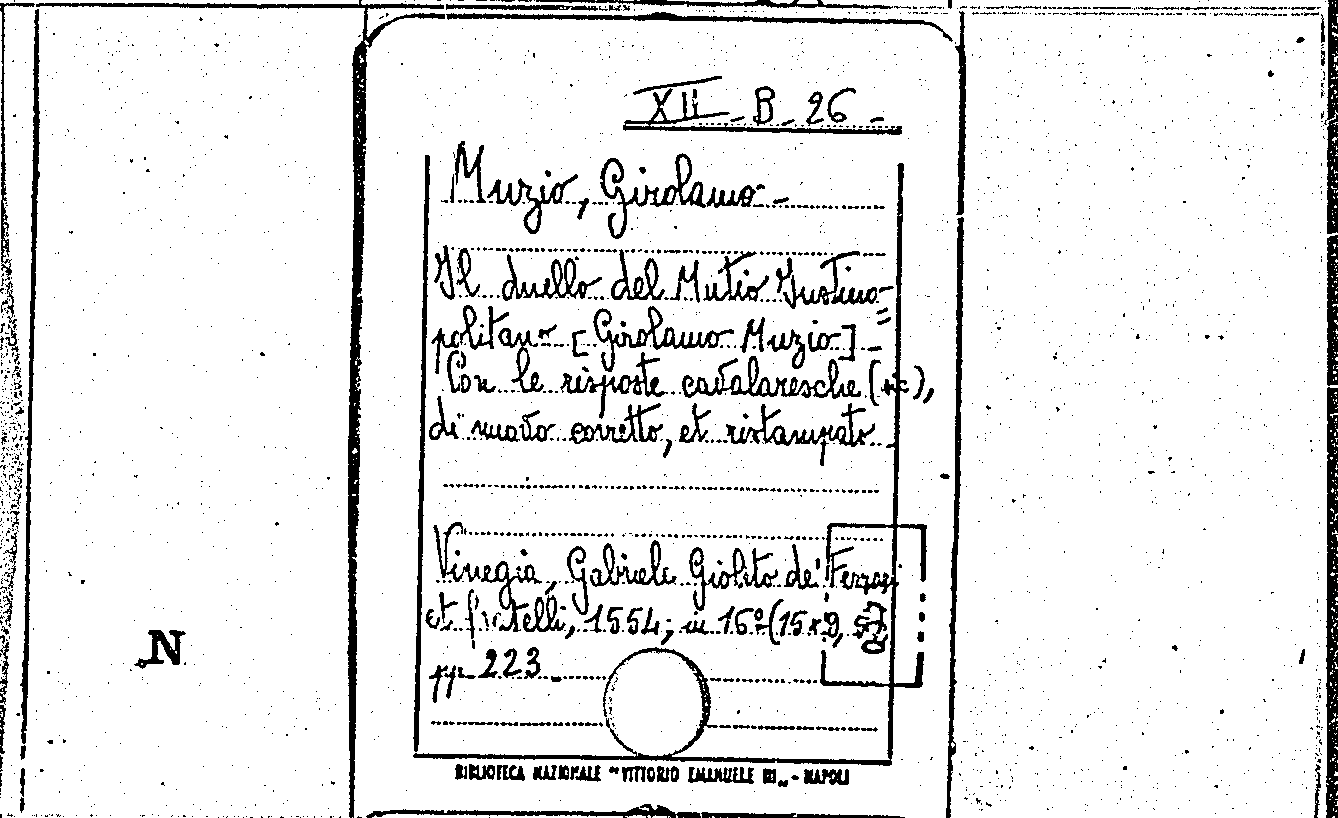 XII - B - 26 -
Muzio, Girolamo -
Il duello del Mutio Iustino=
politano [Girolamo Muzio] -
Con le risposte cavalaresche (sic),
di nuovo corretto, et ristampato -
Vinegia, Gabriele Giolito de' Ferrari
et fratelli, 1554; in 16º (15 x 9,
pp. 223 -
N
BIBLIOTECA NAZIONALE "VITTORIO EMANUELE III" - NAPOLI